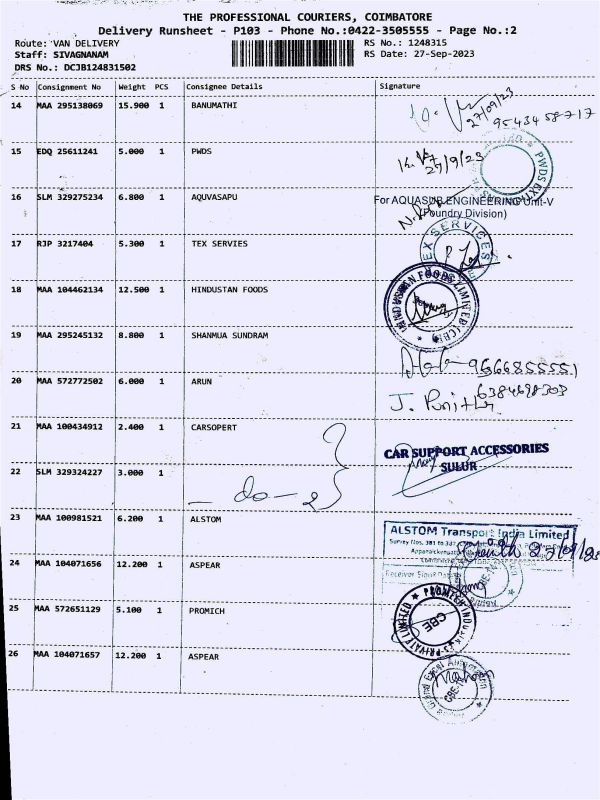 THE PROFESSIONAL COURIERS, COIMBATORE
Delivery Runsheet - P103 - Phone No.:0422-3505555 - Page No.:2
Route: VAN DELIVERY RS No.: 1248315
Staff: SIVAGNANAM RS Date: 27-Sep-2023
DRS No.: DCJB124831502
S No Consignment No Weight PCS Consignee Details Signature
14 MAA 295138069 15.900 1 BANUMATHI
27/09/23
9543458717
15 EDQ 25611241 5.000 1 PWDS
27/9/23
PWDS
16 SLM 329275234 6.800 1 AQUVASAPU
For AQUASUB ENGINEERING Unit-V
(Foundry Division)
17 RJP 3217404 5.300 1 TEX SERVIES
TEX SERVICES
18 MAA 104462134 12.500 1 HINDUSTAN FOODS
HINDUSTAN FOODS LIMITED (CBE)
19 MAA 295245132 8.800 1 SHANMUA SUNDRAM
9666855551
20 MAA 572772502 6.000 1 ARUN
6384698303
J.
21 MAA 100434912 2.400 1 CARSOPERT
CAR SUPPORT ACCESSORIES
SULUR
22 SLM 329324227 3.000 1
- do - 2
23 MAA 100981521 6.200 1 ALSTOM
ALSTOM Transport India Limited
24 MAA 104071656 12.200 1 ASPEAR
25 MAA 572651129 5.100 1 PROMICH
CBE
26 MAA 104071657 12.200 1 ASPEAR
CBE